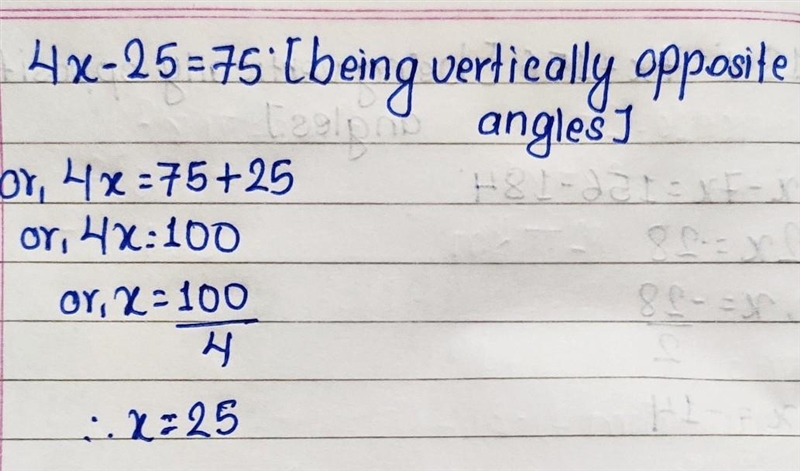 4x-25=75° [being vertically opposite
angles]
or, 4x=75+25
or, 4x=100
or, x=100/4
∴ x=25